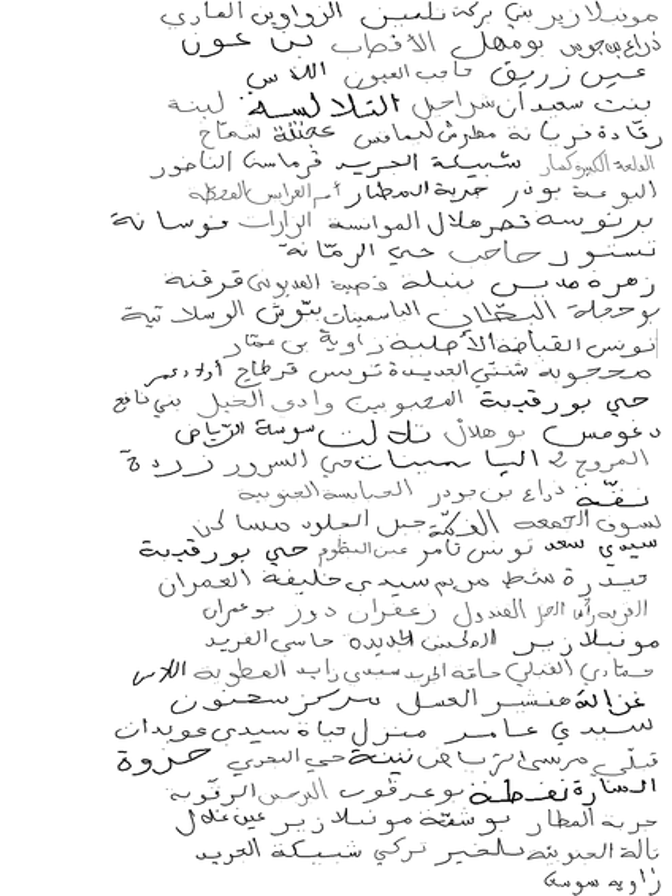 مونبلازير بني بركة تلمين الزواوين الغازي
ذراع بن جودر بومهل الأقصاب بئر عون
عين زريق حاجب العيون اللاس
بنت سعيدان شراحيل التلالسة لبنة
رقادة فريانة مطرش ليماقس عجنقة شماخ
القلعة الكبيرة كمار شبيكة الجريد قرماسة الناظور
البوعة بوذر جربة المطار أم العرايس المحطة
برنوسة قصر هلال الموانسة الزارات فوسانة
تستور حاجب حي الرمانة
زهرة مدين ببلة قصبة المديوني قرفنة
بوحجلة البطان الياسمينات بتوش الوسلاتية
تونس القباضة الأصلية زاوية بن عمار
محجوبة شنني الجديدة تونس قرطاج أولاد عمر
حي بورقيبة القصيبين وادي الخيل بني نافع
دغومس بوهلال تالت سوسة الرياض
المروج 2 الياسمينات حي السرور زردة
نقة ذراع بن جودر العباسة الجنوبية
لسوق الجمعة العكة جبل الجلود مساكن
سيدي سعد تونس ثامر عين البطوم حي بورقيبة
حيدرة شط مريم سيدي خليفة العمران
القرية رأس الجبل الفندول زعفران دوز بوعمران
مونبلازير الدخيلة الجديدة حاسي الفريد
حامة الجريد سيدي زايد العطوية اللاس
غزالة هنشير العسل مركز سحنون
سيدي عامر منزل حياة سيدي عويدات
قبلي مرسى الرياض نبينة حي البحري حزوة
السنارة نفطة بوعرقوب البرمس الرقوبة
جربة المطار بوشقة مونبلازير عين غلال
تالة الجنوبية بلخير تركي شبيكة الجريد
زاوية سوسة